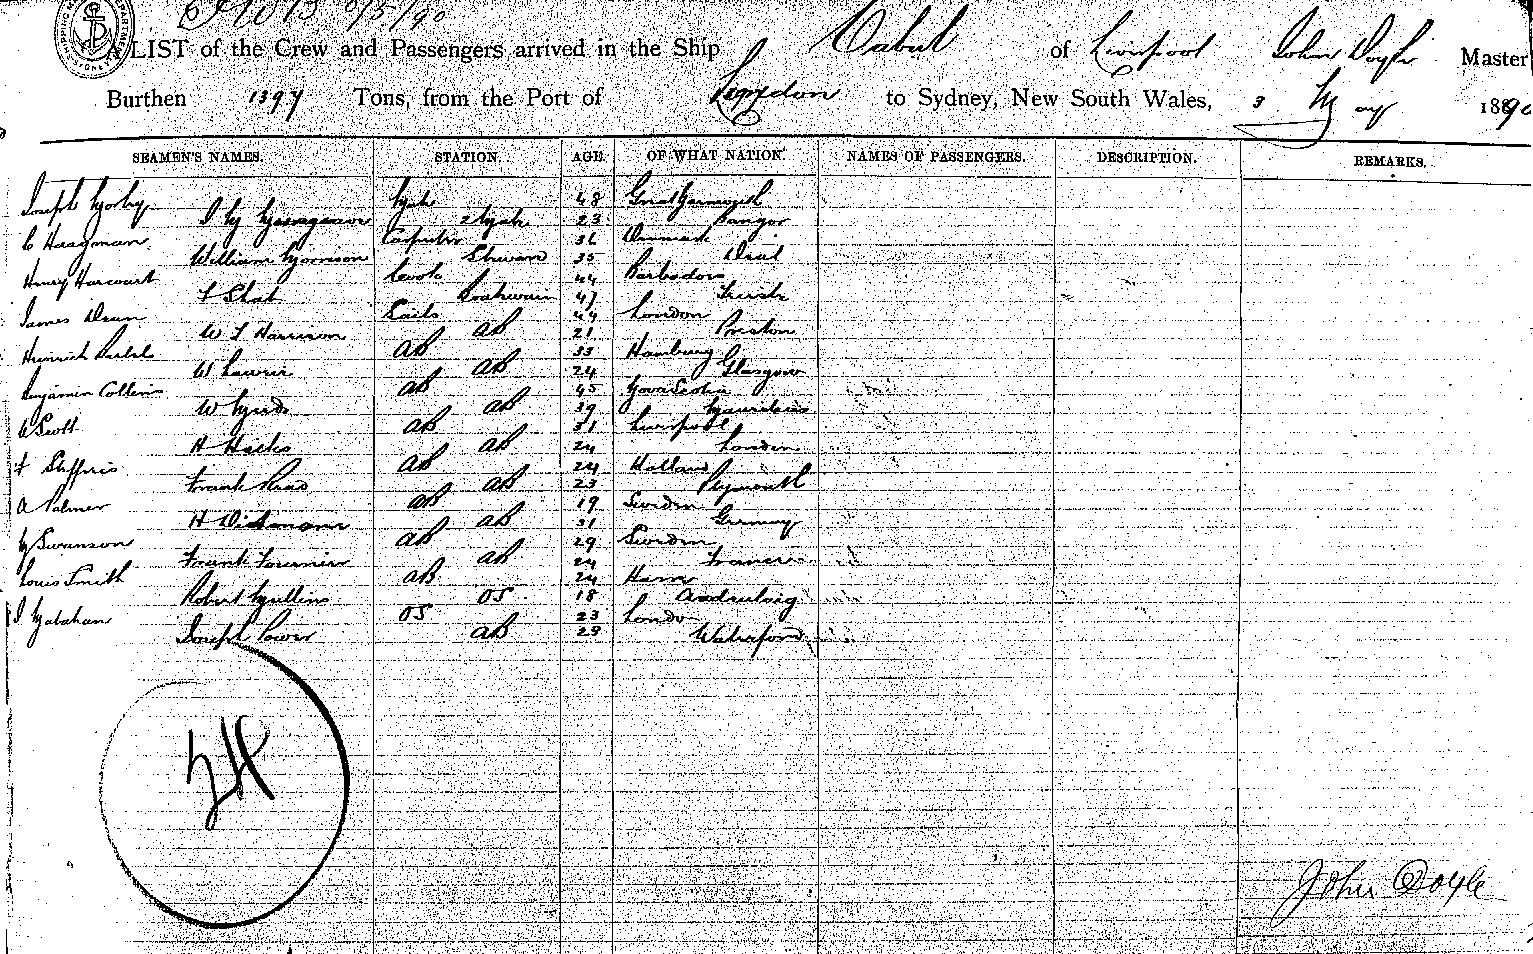 LIST of the Crew and Passengers arrived in the Ship Cabul of Liverpool John Doyle Master
Burthen 1397 Tons, from the Port of London to Sydney, New South Wales, 3 May 1890
SEAMEN'S NAMES. STATION. AGE. OF WHAT NATION. NAMES OF PASSENGERS. DESCRIPTION. REMARKS.
Joseph Mate 48 Great Yarmouth
2 Mate 23 Bangor
C Haagman Carpenter 36 Denmark
William Morrison Steward 35 Deal
Henry Harcourt Cook 44 Barbados
Boatswain 47
James Dean Sails 44 London
W T Harrison AB 21 Preston
Heinrich AB 33 Hamburg
W Lawrie AB 24 Glasgow
Benjamin Collins AB 45 Nova Scotia
W AB 39 Mauritius
W Scott AB 31 Liverpool
H Hacks AB 24 London
AB 24 Holland
Frank Read AB 23 Plymouth
A Palmer AB 19 Sweden
H Dickmann AB 31 Germany
Swanson AB 29 Sweden
Frank Fournier AB 24 France
Louis Smith AB 24
Robert Mullins OS 18
OS 23 London
Joseph Power AB 23 Waterford
John Doyle